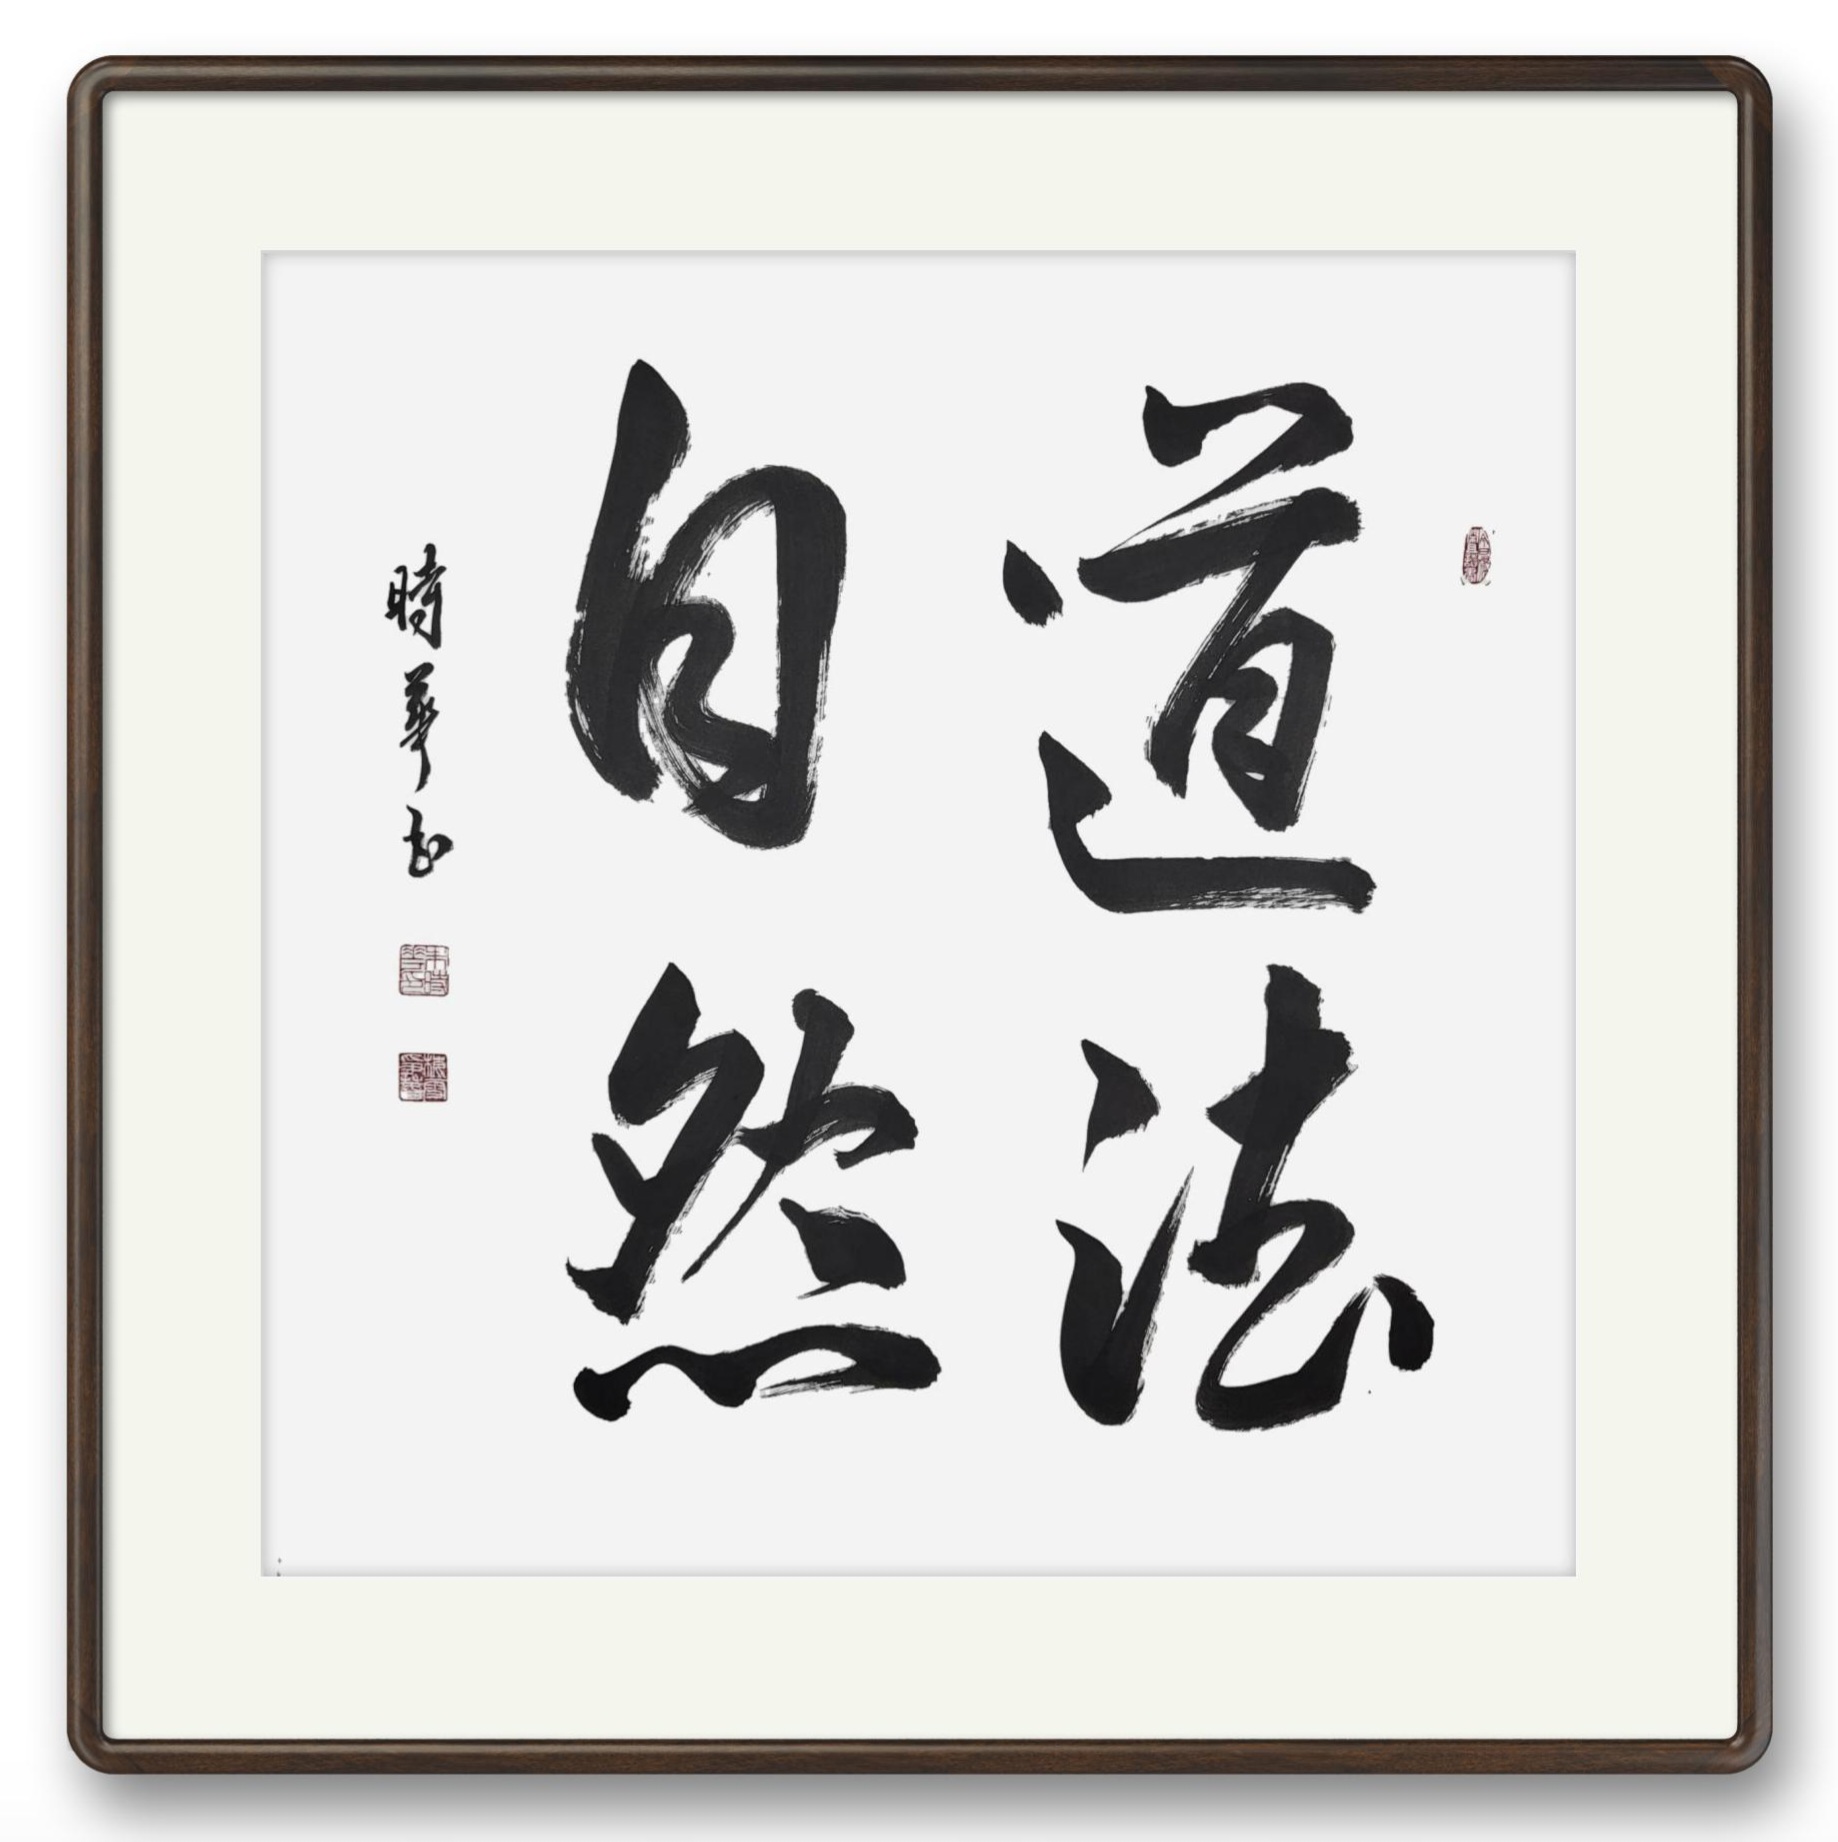 道法
自然
時華书